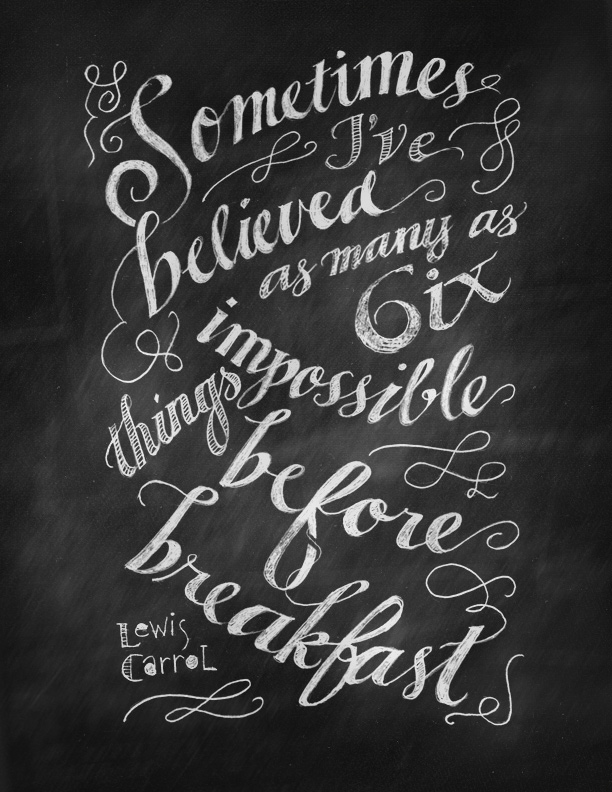 Sometimes
I've
believed
as many as
Six
impossible
things
before
breakfast
Lewis
Carrol